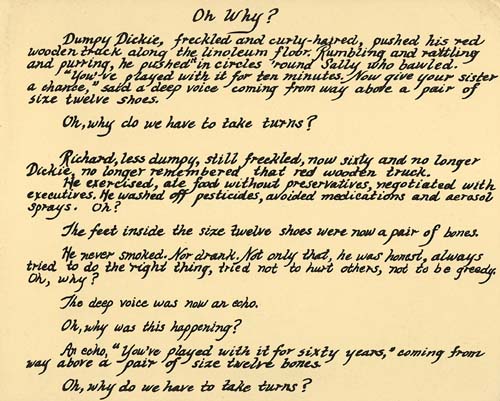 Oh Why?
Dumpy Dickie, freckled and curly-haired, pushed his red
wooden truck along the linoleum floor. Rumbling and rattling
and purring, he pushed it in circles 'round Sally who bawled.
"You've played with it for ten minutes. Now give your sister
a chance," said a deep voice coming from way above a pair of
size twelve shoes.
Oh, why do we have to take turns?
Richard, less dumpy, still freckled, now sixty and no longer
Dickie, no longer remembered that red wooden truck.
He exercised, ate food without preservatives, negotiated with
executives. He washed off pesticides, avoided medications and aerosol
sprays. Oh?
The feet inside the size twelve shoes were now a pair of bones.
He never smoked. Nor drank. Not only that, he was honest, always
tried to do the right thing, tried not to hurt others, not to be greedy.
Oh, why?
The deep voice was now an echo.
Oh, why was this happening?
An echo, "You've played with it for sixty years," coming from
way above a pair of size twelve bones.
Oh, why do we have to take turns?